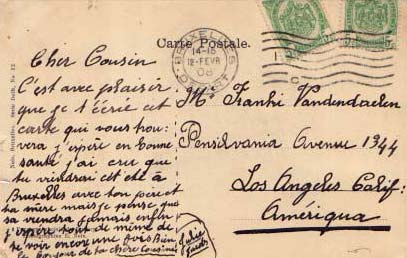 Carte Postale.
BRUXELLES
14-15
12-FEVR
08
DEPART
Cher Cousin
C'est avec plaisir
que je t'écrie cet
carte qui vous trou-
vera j'éspère en bonne
santé j'ai cru que
tu viendrai cet été à
Bruxelles avec ton père et
ta mère mais je pense que
sa viendra jamais enfin
j'éspère tout de même de
te voir encor une fois Bien
le bonjour de ta chère Cousine
Mr Franki Vandendaelen
Pensilvania Avenue 1344
Los Angeles Calif:
Amériqua